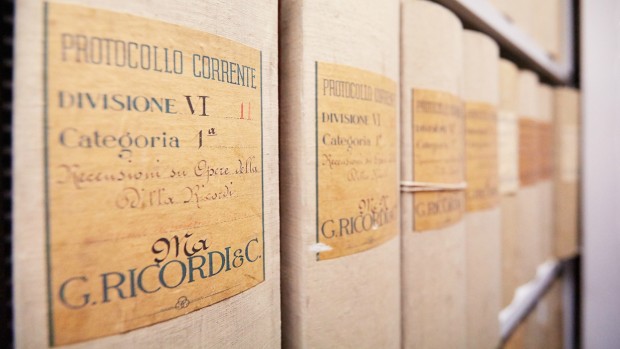 PROTOCOLLO CORRENTE
DIVISIONE VI 11
Categoria 1ª
Recensioni su Opere della
Ditta Ricordi
Ma
G. RICORDI & C.
PROTOCOLLO CORRENTE
DIVISIONE VI
Categoria 1ª
Recensioni
G. RICORDI
PROTOCOLLO
DIVISIONE
Categoria
G. RICORDI